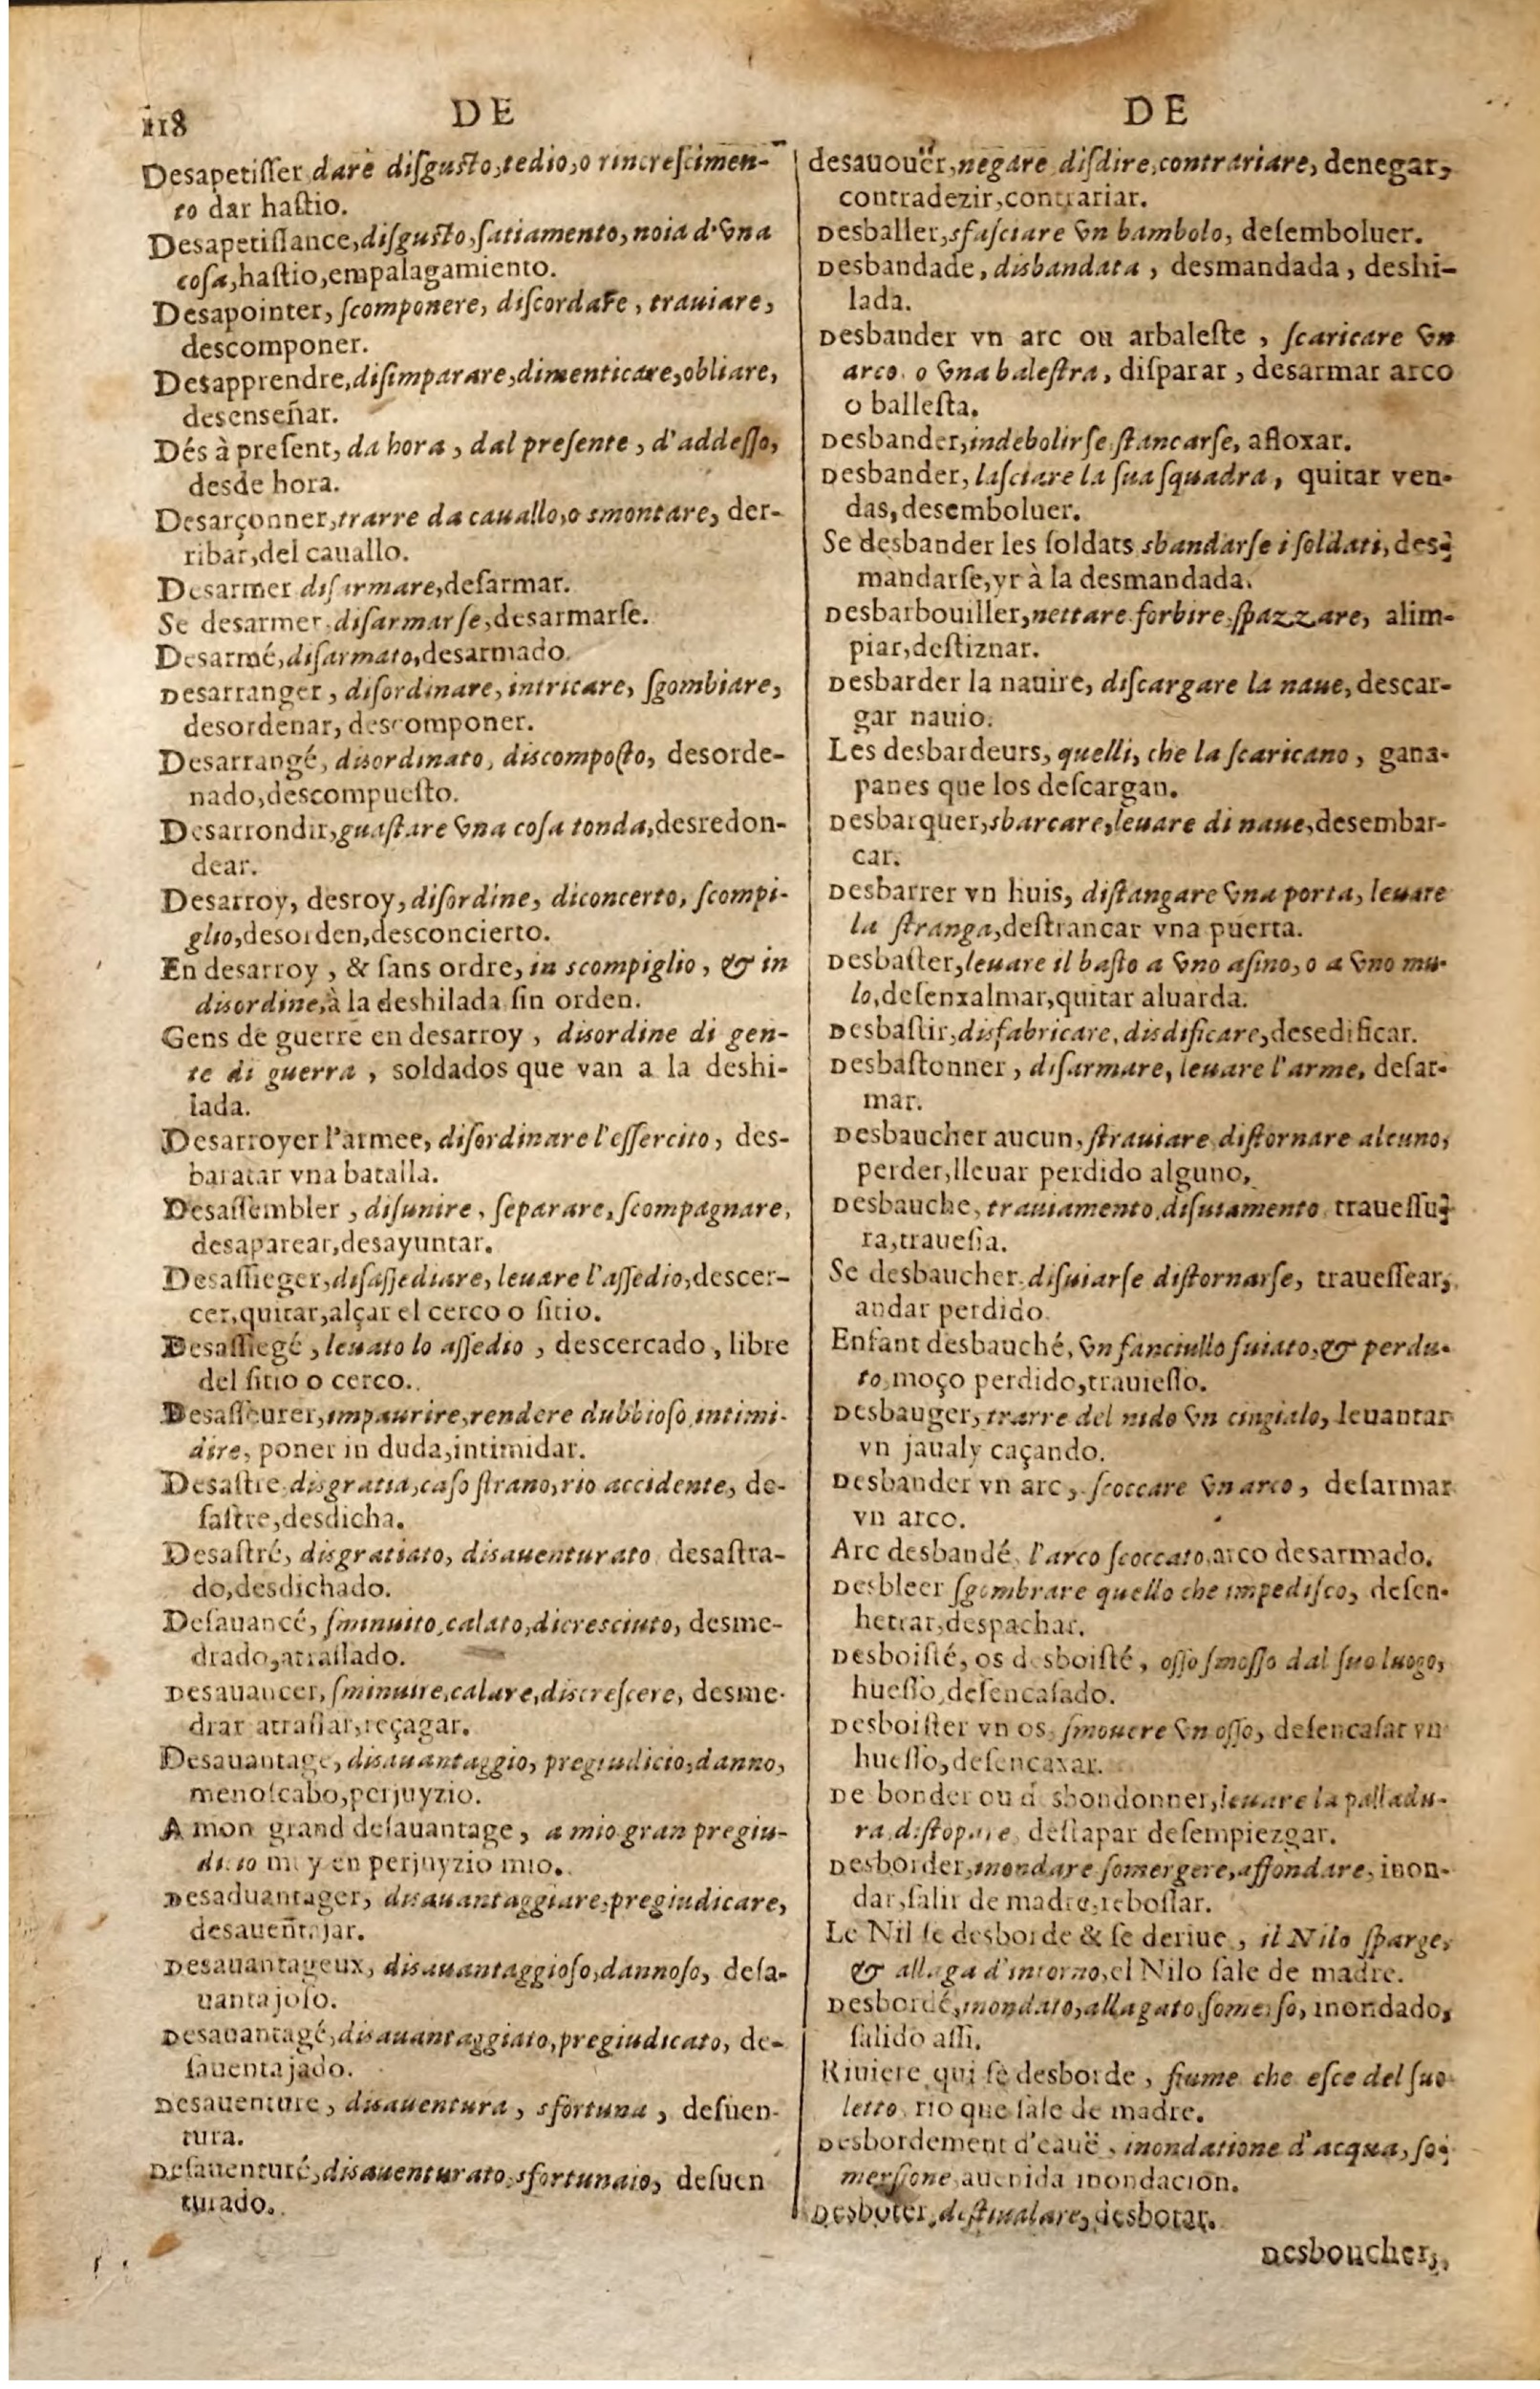 118
DE
Desapetiſſer dare diſguſto, tedio, o rincreſcimen-
to dar haſtio.
Desapetiſſance, diſguſto, ſatiamento, noia d'vna
coſa, haſtio, empalagamiento.
Desapointer, ſcomponere, diſcordare, trauiare,
descomponer.
Desapprendre, diſimparare, dimenticare, obliare,
desenseñar.
Dés à preſent, da hora, dal preſente, d'addeſſo,
desde hora.
Desarçonner, trarre da cauallo, o smontare, der-
ribar, del cauallo.
Desarmer diſarmare, deſarmar.
Se desarmer, diſarmarſe, desarmarſe.
Desarmé, diſarmato, desarmado.
Desarranger, diſordinare, intricare, ſgombiare,
desordenar, descomponer.
Desarrangé, disordinato, discompoſto, desorde-
nado, descompueſto.
Desarrondir, guaſtare vna coſa tonda, desredon-
dear.
Desarroy, desroy, diſordine, diconcerto, ſcompi-
glio, desorden, desconcierto.
En desarroy, & ſans ordre, in scompiglio, & in
disordine, à la deshilada ſin orden.
Gens de guerre en desarroy, disordine di gen-
te di guerra, soldados que van a la deshi-
lada.
Desarroyer l'armee, diſordinare l'eſſercito, des-
baratar vna batalla.
Desaſſembler, diſunire, ſeparare, ſcompagnare,
desaparear, desayuntar.
Desaſſieger, diſaſſediare, leuare l'aſſedio, descer-
cer, quitar, alçar el cerco o ſitio.
Desaſſiegé, leuato lo aſſedio, descercado, libre
del ſitio o cerco.
Desaſſeurer, impaurire, rendere dubbioſo intimi-
dire, poner in duda, intimidar.
Desaſtre disgratia, caſo ſtrano, rio accidente, de-
ſaſtre, desdicha.
Desaſtré, disgratiato, disauenturato desaſtra-
do, desdichado.
Deſauancé, ſminuito, calato, dicresciuto, desme-
drado, atraſſado.
Desauancer, ſminuire, calare, discreſcere, desme-
drar atraſſar, reçagar.
Desauantage, disauantaggio, pregiudicio, danno,
menoſcabo, perjuyzio.
A mon grand deſauantage, a mio gran pregiu-
muy en perjuyzio mio.
Desaduantager, disauantaggiare, pregiudicare,
desauentajar.
Desauantageux, disauantaggioſo, dannoſo, deſa-
uantajoſo.
Desauantagé, disauantaggiato, pregiudicato, de-
ſauentajado.
Desauenture, disauentura, sfortuna, deſuen-
tura.
Deſauenturé, disauenturato, sfortunato, deſuen
turado.
DE
desauouër, negare diſdire, contrariare, denegar,
contradezir, contrariar.
Desballer, sfaſciare vn bambolo, deſemboluer.
Desbandade, disbandata, desmandada, deshi-
lada.
Desbander vn arc ou arbaleſte, ſcaricare vn
arco o vna baleſtra, diſparar, desarmar arco
o balleſta.
Desbander, indebolirſe ſtancarſe, afloxar.
Desbander, laſciare la ſua ſquadra, quitar ven-
das, desemboluer.
Se desbander les ſoldats sbandarſe i ſoldati, des-
mandarſe, yr à la desmandada.
Desbarbouiller, nettare forbire ſpazzare, alim-
piar, deſtiznar.
Desbarder la nauire, diſcargare la naue, descar-
gar nauio.
Les desbardeurs, quelli, che la ſcaricano, gana-
panes que los deſcargan.
Desbarquer, sbarcare, leuare di naue, desembar-
car.
Desbarrer vn huis, diſtangare vna porta, leuare
la ſtranga, deſtrancar vna puerta.
Desbaſter, leuare il baſto a vno aſino, o a vno mu-
lo, deſenxalmar, quitar aluarda.
Desbaſtir, disfabricare, disdificare, desedificar.
Desbaſtonner, diſarmare, leuare l'arme, deſar-
mar.
Desbaucher aucun, ſtrauiare diſtornare alcuno,
perder, lleuar perdido alguno,
Desbauche, trauiamento, diſuiamento traueſſu-
ra, traueſia.
Se desbaucher diſuiarſe diſtornarſe, traueſſear,
andar perdido.
Enfant desbauché, vn fanciullo ſuiato, & perdu-
to, moço perdido, trauieſſo.
Desbauger, trarre del nido vn cingialo, leuantar
vn jaualy caçando.
Desbander vn arc, ſcoccare vn arco, deſarmar
vn arco.
Arc desbandé, l'arco ſcoccato, arco desarmado.
Desbleer ſgombrare quello che impediſco, deſen-
hetrar, despachar.
Desboiſté, os desboiſté, oſſo ſmoſſo dal ſuo luogo,
hueſſo, deſencaſado.
Desboiſter vn os, ſmouere vn oſſo, deſencaſar vn
hueſſo, deſencaxar.
De bonder ou desbondonner, leuare la palladu-
ra, diſtopare, deſtapar deſempiezgar.
Desborder, inondare ſomergere, affondare, inon-
dar, ſalir de madre, reboſſar.
Le Nil ſe desborde & ſe deriue, il Nilo ſparge,
& allaga d'intorno, el Nilo ſale de madre.
Desbordé, inondato, allagato, ſomerſo, inondado,
ſalido aſſi.
Riuiere qui ſe desborde, fiume che eſce del ſuo
letto, rio que ſale de madre.
Desbordement d'eauë, inondatione d'acqua, ſo-
merſione auenida inondacion.
Desboter, deſtiualare, desbotar.
Desboucher,